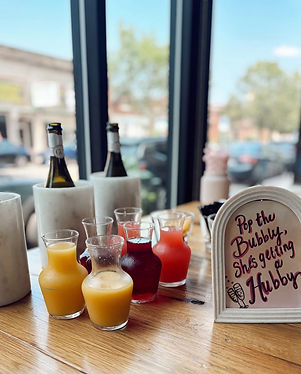 Pop the
Bubbly,
she's getting
a
Hubby